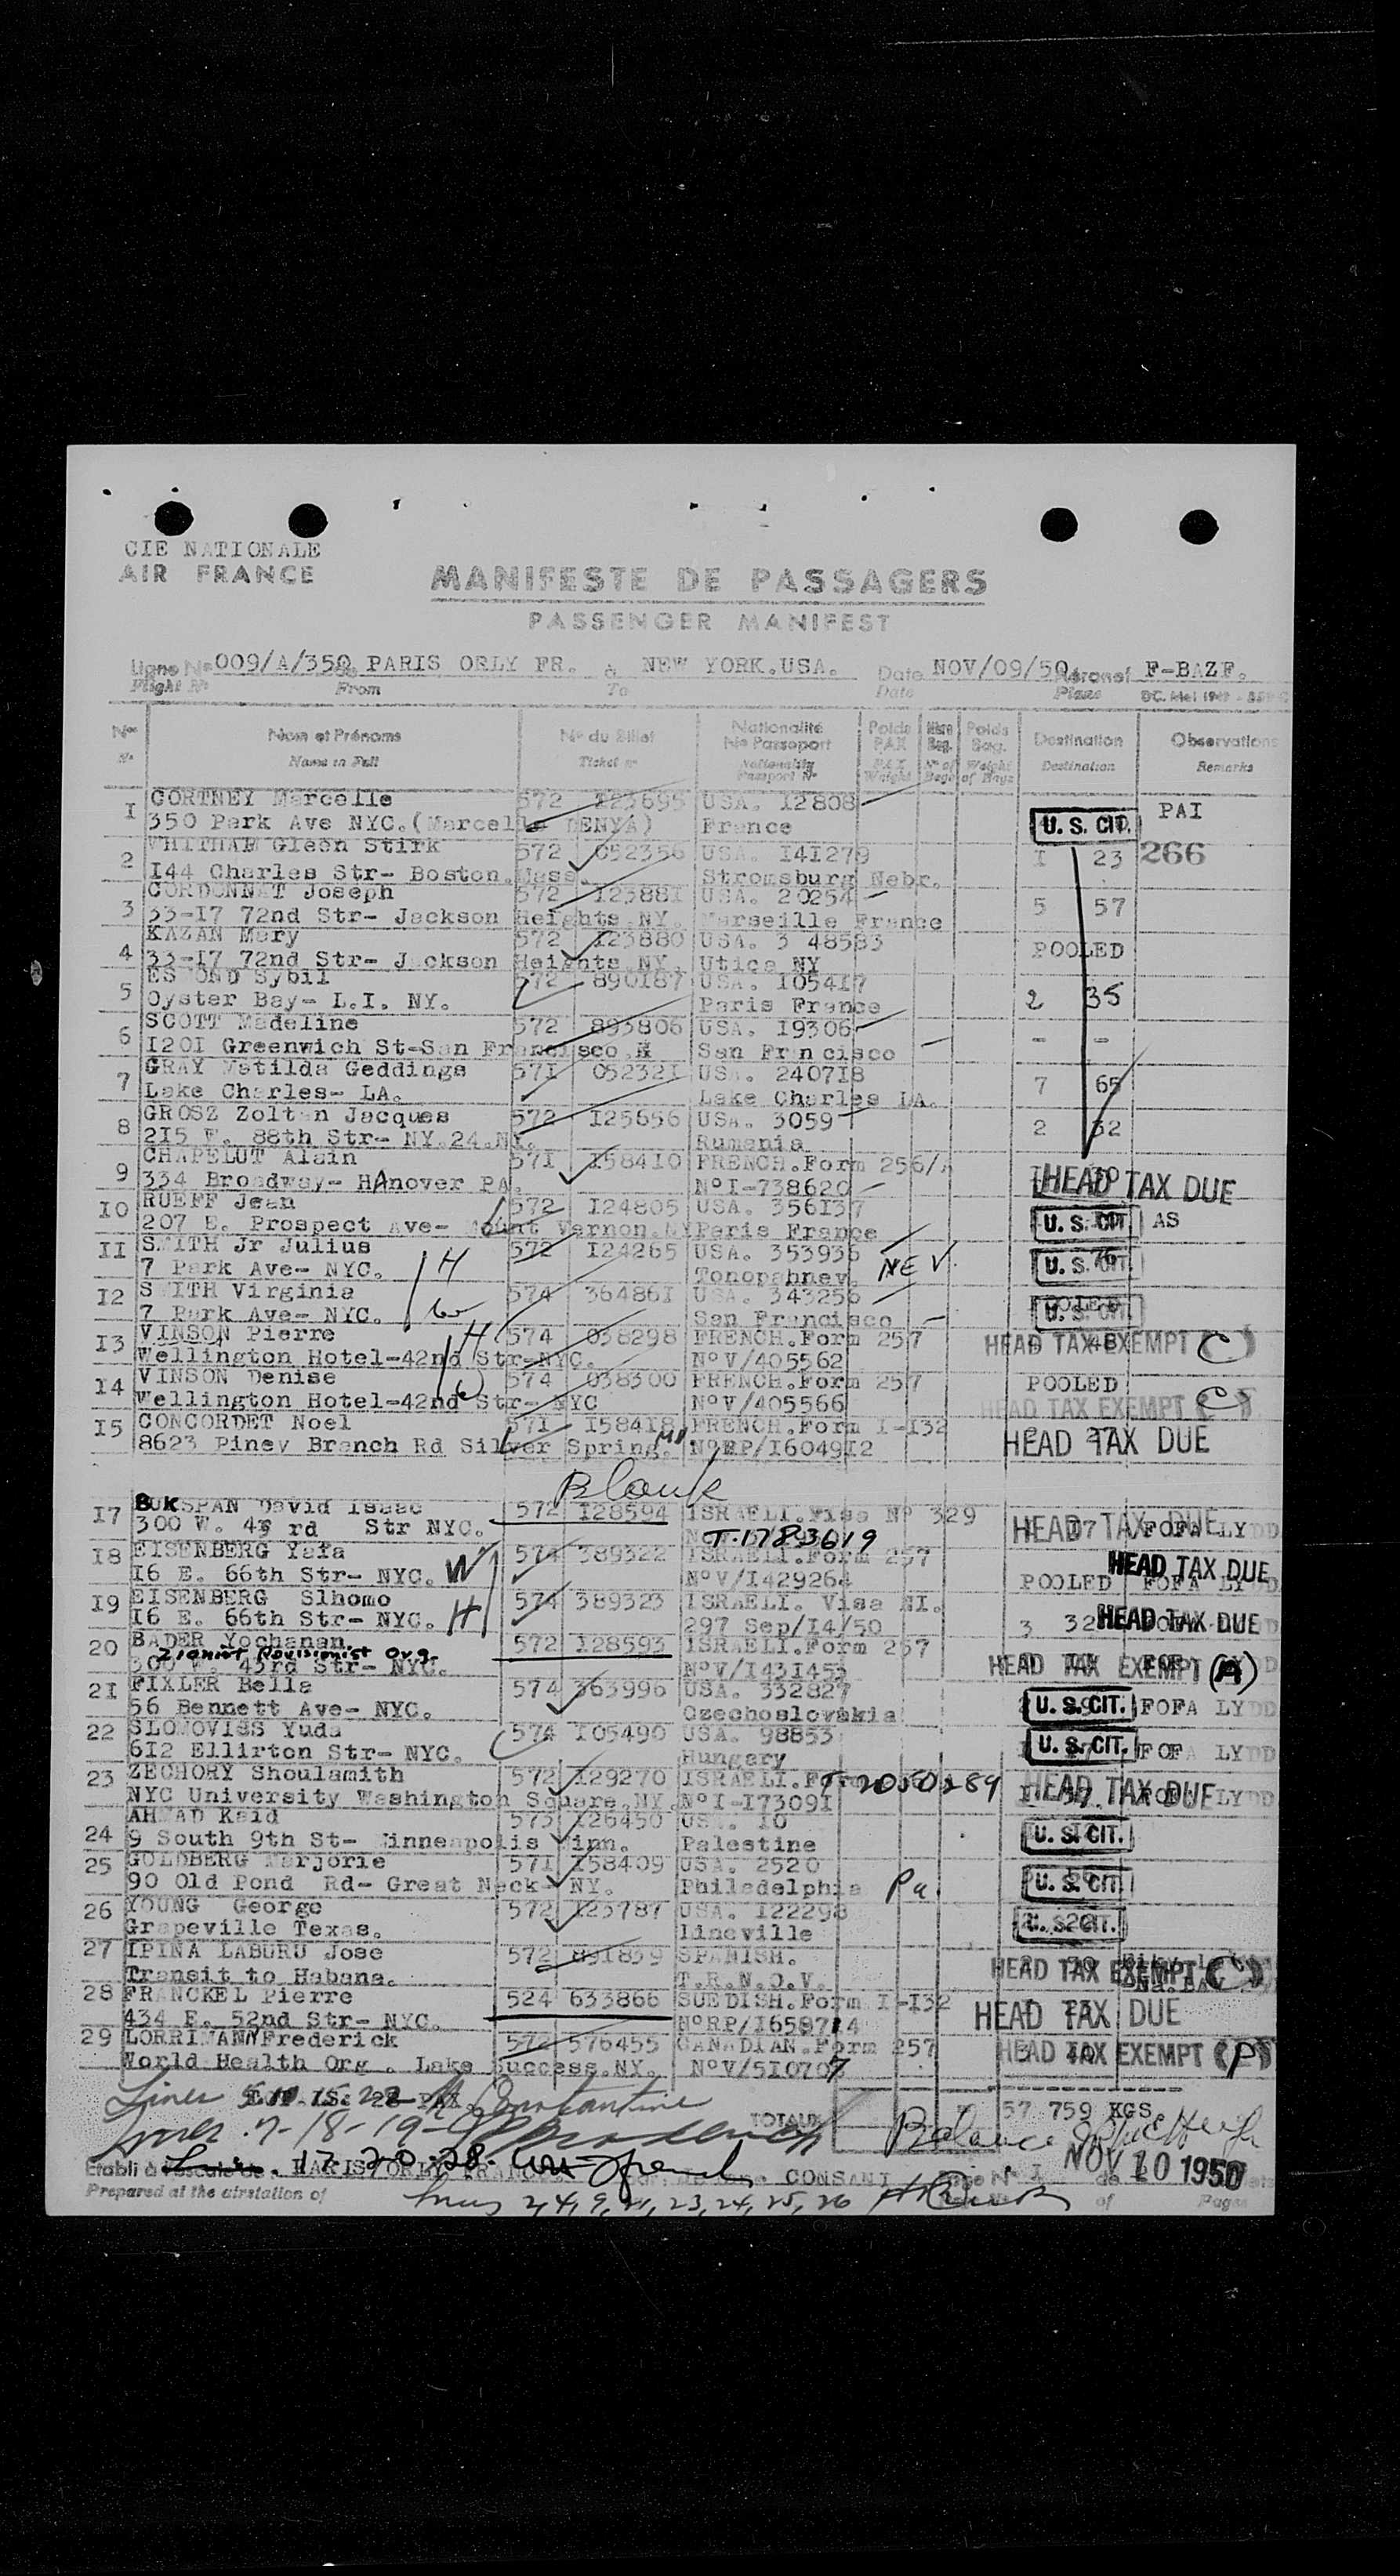 CIE NATIONALE
AIR FRANCE
MANIFESTE DE PASSAGERS
PASSENGER MANIFEST
Ligne No 009/A/350 PARIS ORLY FR. à NEW YORK.USA. Date NOV/09/50 Aéronef F-BAZF.
Flight No From To Date Plane
Nos Nom et Prénoms No du Billet Nationalité No Passeport Poids PAX Nbre Bag. Poids Bag. Destination Observations
Name in Full Ticket no Nationality Passport No PAX Weight No of Bags Weight of Bags Destination Remarks
1 CORTNEY Marcelle 572 123695 USA. 12808 PAI
350 Park Ave NYC.(Marcelle DENYA) France U. S. CIT.
2 WHITHAM Gleen Stirk 572 052356 USA. 141279 1 23 266
144 Charles Str- Boston.Mass. Stromsburg Nebr.
3 CORDONNAT Joseph 572 123881 USA. 20254 5 57
33-17 72nd Str- Jackson Heights.NY. Marseille France
4 KAZAN Mary 572 123880 USA. 3 48583 POOLED
33-17 72nd Str- Jackson Heights.NY. Utica NY
5 ES OND Sybil 572 890187 USA. 105417 2 35
Oyster Bay- L.I. NY. Paris France
6 SCOTT Madeline 572 893806 USA. 19306 - -
1201 Greenwich St-San Francisco San Francisco
7 GRAY Matilda Geddings 571 052321 USA. 240718 7 65
Lake Charles- LA. Lake Charles LA.
8 GROSZ Zoltan Jacques 572 125656 USA. 3059 2 32
215 W. 88th Str- NY.24.NY. Rumania
9 CHAPELUT Alain 571 158410 FRENCH.Form 256/A
334 Broadway- HAnover PA. No I-738620 HEAD TAX DUE
10 RUEFF Jean 572 124805 USA. 356137 U. S. CIT. AS
207 E. Prospect Ave- Mount Vernon.NY Paris France
11 SMITH Jr Julius 572 124265 USA. 353936 U. S. CIT.
7 Park Ave- NYC. H Tonopahnev. NEV.
12 SMITH Virginia 574 364861 USA. 343256 POOLED U. S. CIT.
7 Park Ave- NYC. W San Francisco
13 VINSON Pierre H 574 038298 FRENCH.Form 257 HEAD TAX EXEMPT (C)
Wellington Hotel-42nd Str-NYC. No V/405562
14 VINSON Denise W 574 038300 FRENCH.Form 257 POOLED
Wellington Hotel-42nd Str- NYC No V/405566 HEAD TAX EXEMPT (C)
15 CONCORDET Noel 571 158418 FRENCH.Form I-132 HEAD TAX DUE
8623 Piney Branch Rd Silver Spring. MD No RP/1604912
Blank
17 BUKSPAN David Isaac 572 128594 ISRAELI.Visa No 329 HEAD TAX DUE FOFA LYDD
300 W. 43 rd Str NYC. T-1783619
18 EISENBERG Yafa 574 389322 ISRAELI.Form 257 HEAD TAX DUE
16 E. 66th Str- NYC. W No V/1429264 POOLED FOFA LYDD
19 EISENBERG Slhomo 574 389323 ISRAELI. Visa NI.
16 E. 66th Str- NYC. H 297 Sep/14/50 3 32 HEAD TAX DUE
20 BADER Yochanan 572 128593 ISRAELI.Form 257
Zionist Revisionist Org.
300 W. 43rd Str- NYC. No V/1431453 HEAD TAX EXEMPT (A)
21 FIXLER Bella 574 363996 USA. 332827
56 Bennett Ave- NYC. Czechoslovakia U. S. CIT. FOFA LYDD
22 SLOMOVISS Yuda 574 105490 USA. 98853
612 Ellirton Str- NYC. Hungary U. S. CIT. FOFA LYDD
23 ZECHORY Shoulamith 572 129270 ISRAELI. T-2050289
NYC University Washington Square.NY. No I-173091 HEAD TAX DUE LYDD
24 AHMAD Kaid 573 126450 USA. 10 U. S. CIT.
9 South 9th St- Minneapolis Minn. Palestine
25 GOLDBERG Marjorie 571 158409 USA. 2520 U. S. CIT.
90 Old Pond Rd- Great Neck- NY. Philadelphia Pa.
26 YOUNG George 572 123787 USA. 122298 U. S. CIT.
Grapeville Texas. lineville
27 IPINA LABURU Jose 572 891859 SPANISH. HEAD TAX EXEMPT (C)
Transit to Habana. T.R.N.O.V.
28 FRANCKEL Pierre 524 633866 SUEDISH.Form I-132 HEAD TAX DUE
434 E. 52nd Str- NYC. No RP/1658714
29 LORRIMANN Frederick 572 576455 CANADIAN.Form 257 HEAD TAX EXEMPT (P)
World Health Org . Lake Success.NY. No V/510707
Lines
TOTAUX 57 759 KGS
7-18-19- Balance
Etabli à PARIS ORLY FRANCE 17-20-28 CONSANI NOV 10 1950
Prepared at the airstation of lines 2, 4, 9, 21, 23, 24, 25, 26 of Pages